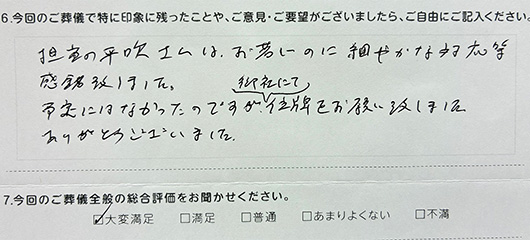 6.今回のご葬儀で特に印象に残ったことや、ご意見・ご要望がございましたら、ご自由にご記入ください。
担当の平吹さんは、お若いのに細やかな対応等
感銘致しました。
御社にて
予定にはなかったのですが、位牌もお願い致しました
ありがとうございました。
7.今回のご葬儀全般の総合評価をお聞かせください。
☑大変満足 □満足 □普通 □あまりよくない □不満